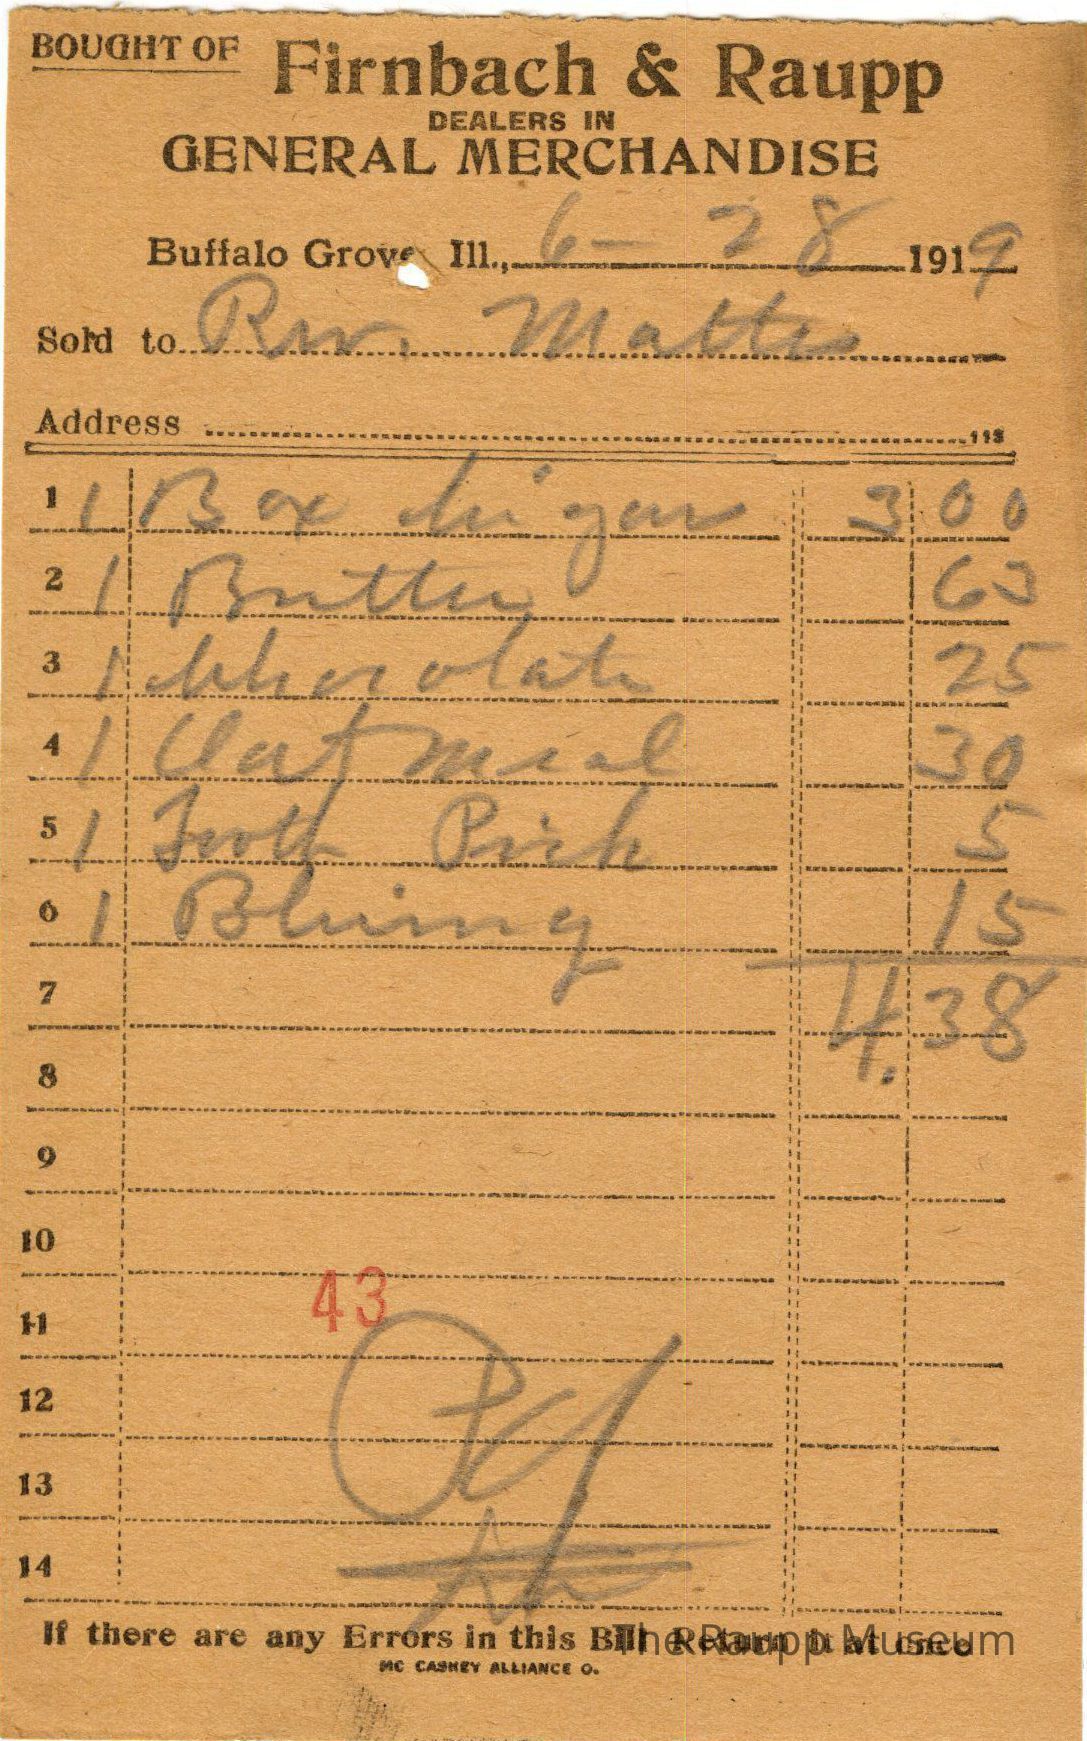 BOUGHT OF Firnbach & Raupp
DEALERS IN
GENERAL MERCHANDISE
Buffalo Grove, Ill., 6-28 1919
Sold to Rev. Mattes
Address 113
1 1 Box 3 00
2 1 Butter 63
3 1 Chocolate 25
4 1 Oat meal 30
5 1 Tooth Pick 5
6 1 Bluing 15
7 4.38
8
9
10
43
11
12
13
14
If there are any Errors in this Bill Return it at once
The Raupp Museum
MC CASKEY ALLIANCE O.